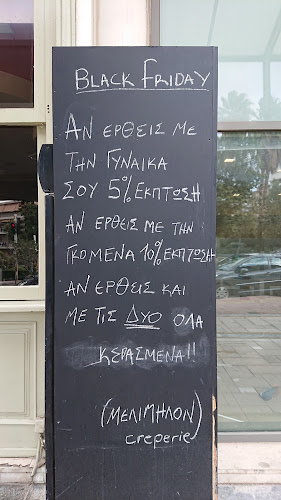 BLACK FRIDAY
ΑΝ ΕΡΘΕΙΣ ΜΕ
ΤΗΝ ΓΥΝΑΙΚΑ
ΣΟΥ 5% ΕΚΠΤΩΣΗ
ΑΝ ΕΡΘΕΙΣ ΜΕ ΤΗΝ
ΓΚΟΜΕΝΑ 10% ΕΚΠΤΩΣΗ
ΑΝ ΕΡΘΕΙΣ ΚΑΙ
ΜΕ ΤΙΣ ΔΥΟ ΟΛΑ
ΚΕΡΑΣΜΕΝΑ!!
(ΜΕΛΙΜΗΛΟΝ)
creperie